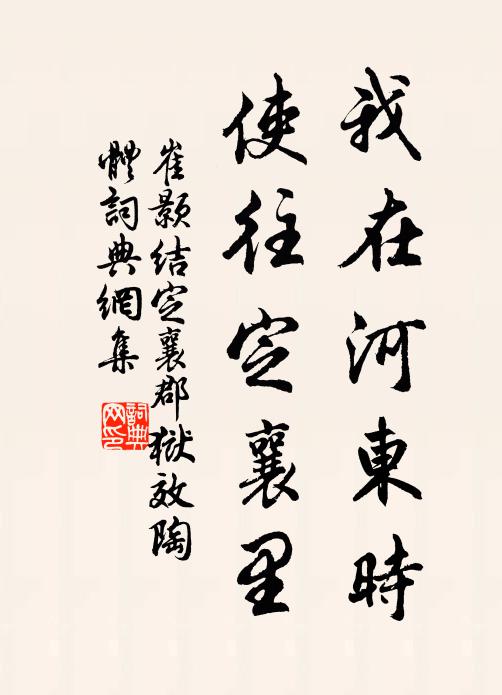 我在河東時
使往定襄里
崔顥結定襄郡獄效陶
體詞典網集
詞典
网印